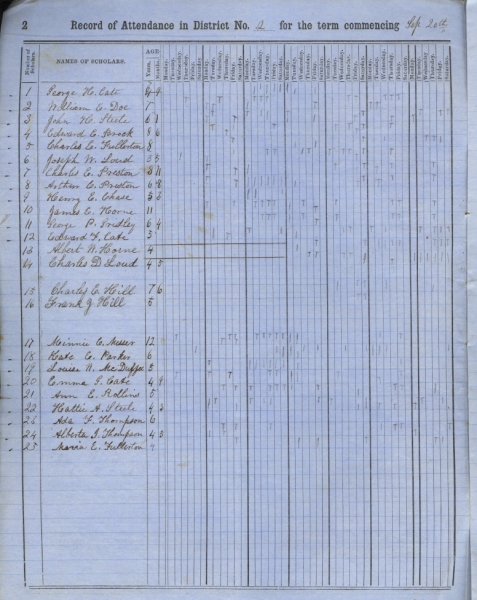 2 Record of Attendance in District No. 2 for the term commencing Sep 20th
Number of Scholars. NAMES OF SCHOLARS. AGE
Years. Months. Monday. Tuesday. Wednesday. Thursday. Friday. Saturday.
1 George H. Cate 4 4
2 William E. Doe
3 John H. Steele 6 1
4 Edward E. Brock 8 6
5 Charles E. Fullerton 8
6 Joseph W. Loud 5 5
7 Charles E. Preston 8 11
8 Arthur E. Preston 6 8
9 Henry E. Chase 5
10 James E. Horne 11
11 George P. 6 4
12 Edward F. Cate 5
13 Albert W. Horne 4
14 Charles D. Loud 4 5
15 Charles E. Hill 7 6
16 Frank J. Hill 5
17 Minnie E. Messer 12
18 Kate E. Parker 6
19 Louisa N. McDuffee 5
20 Emma F. Cate 4 9
21 Ann E. Rollins 5
22 Hattie A. Steele 4 2
23 Ada F. Thompson 6
24 Alberta J. Thompson 4 5
25 Maria E. Fullerton